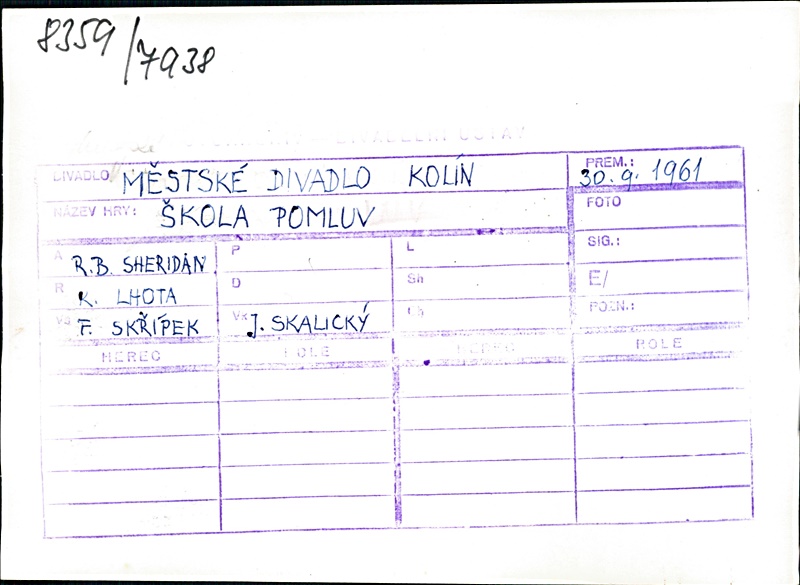 8359/7938
DIVADLO MĚSTSKÉ DIVADLO KOLÍN PREM.: 30. 9. 1961
NÁZEV HRY: ŠKOLA POMLUV FOTO
A R.B. SHERIDAN P L SIG.:
R K. LHOTA D Sh E/
F. SKŘÍPEK Vk J. SKALICKÝ POZN.:
HEREC ROLE HEREC ROLE